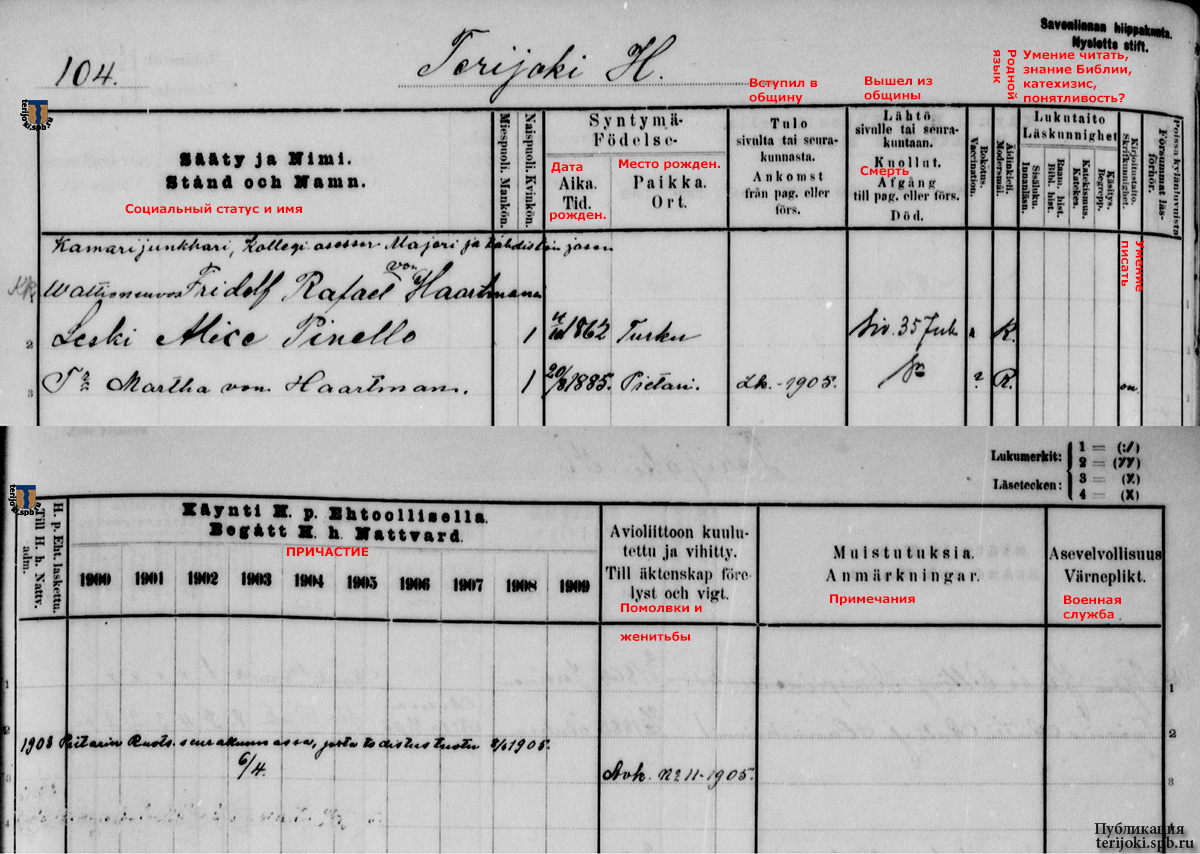 Savonlinnan hiippakunta.
Nyslotts stift.
104.
Terijoki H.
Вступил в
общину
Вышел из
общины
Родной
язык
Умение читать,
знание Библии,
катехизис,
понятливость?
terijoki.spb.ru
Sääty ja Nimi.
Stånd och Namn.
Социальный статус и имя
Miespuoli. Mankön.
Naispuoli. Kvinkön.
Syntymä-
Födelse-
Дата
Aika.
Tid.
рожден.
Место рожден.
Paikka.
Ort.
Tulo
sivulta tai seura-
kunnasta.
Ankomst
från pag. eller
förs.
Lähtö
sivulle tai seura-
kuntaan.
Kuollut.
Смерть
Afgång
till pag. eller förs.
Död.
Rokotus.
Vaccination.
Äidinkieli.
Modersmål.
Lukutaito
Läskunnighet
Sisäluku.
Innanläsn.
Raam. hist.
Bibl. hist.
Katekismus.
Katekes.
Käsitys.
Begrepp.
Kirjoitustaito.
Skrifkunnighet.
Умение
писать
Poissa kylänluvuista
Försummat läs-
förhör.
Kamarijunkkari, Kollegi asessor Majori ja
von
Fridolf Rafael Haartmanin
2 Leski Alice Pinello 1 1862 Turku Siv. 35 R.
3 Martha von Haartman. 1 20/8 1885. Pietari. Lk. - 1905. ? R.
Lukumerkit:
Läsetecken:
1 = (:/)
2 = (//)
3 = (X)
4 = (X)
terijoki.spb.ru
H. p. Eht. laskettu.
Till H. h. Nattv.
adm.
Käynti H. p. Ehtoollisella.
Begått H. h. Nattvard.
ПРИЧАСТИЕ
1900 1901 1902 1903 1904 1905 1906 1907 1908 1909
Avioliittoon kuulu-
tettu ja vihitty.
Till äktenskap före-
lyst och vigt.
Помолвки и
женитьбы
Muistutuksia.
Anmärkningar.
Примечания
Asevelvollisuus
Värneplikt.
Военная
служба
1
1903 Pietarin Ruots. seurakunnassa, josta todistus tuotu 1905.
2
6/4.
3 Avk. No 11 - 1905. 3
4
Публикация
terijoki.spb.ru